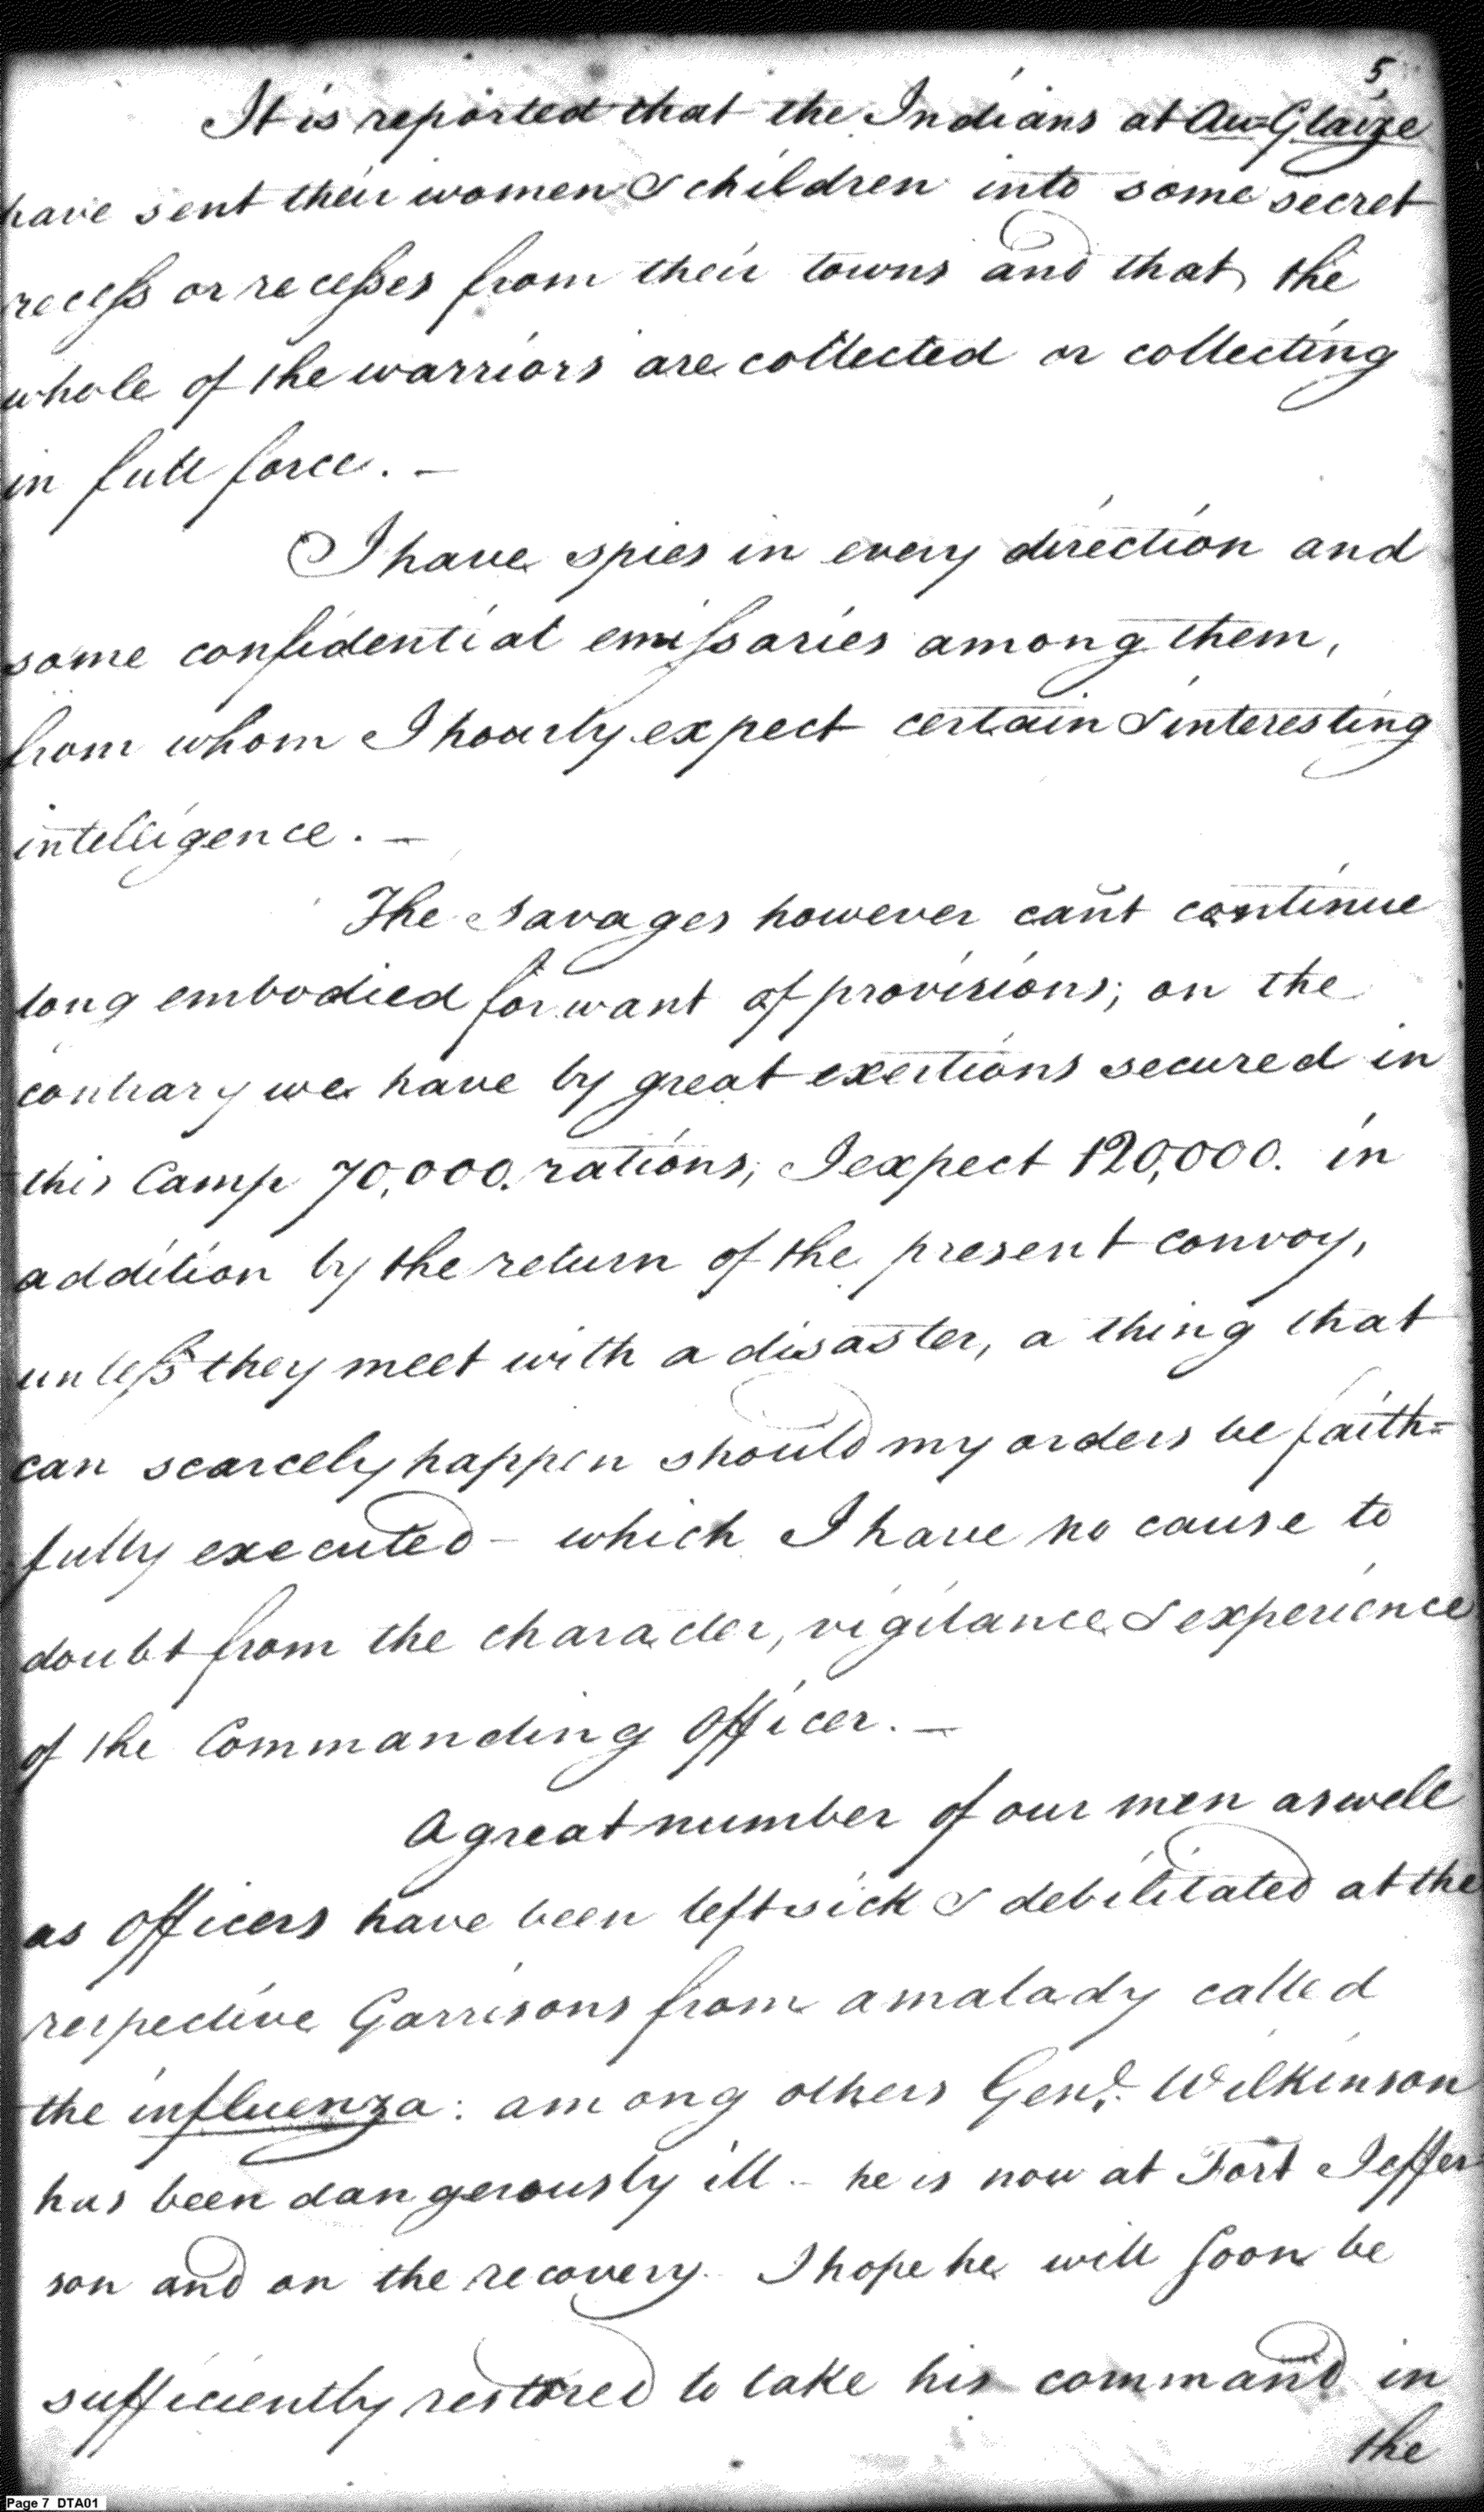 5,
It is reported that the Indians at Au=Glaize
have sent their women & children into some secret
recess or recesses from their towns and that the
whole of the warriors are collected or collecting
in full force. —
I have spies in every direction and
some confidential emissaries among them,
from whom I hourly expect certain & interesting
intelligence. —
The savages however can't continue
long embodied for want of provisions; on the
contrary we have by great exertions secured in
this Camp 70,000. rations, I expect 120,000. in
addition by the return of the present convoy,
unless they meet with a disaster, a thing that
can scarcely happen should my orders be faith=
fully executed – which I have no cause to
doubt from the character, vigilance & experience
of the Commanding Officer. —
A great number of our men as well
as Officers have been left sick & debilitated at the
respective Garrisons from a malady called
the influenza: among others Genl. Wilkinson
has been dangerously ill – he is now at Fort Jeffer
son and on the recovery. I hope he will soon be
sufficiently restored to take his command in
the
Page 7 DTA01